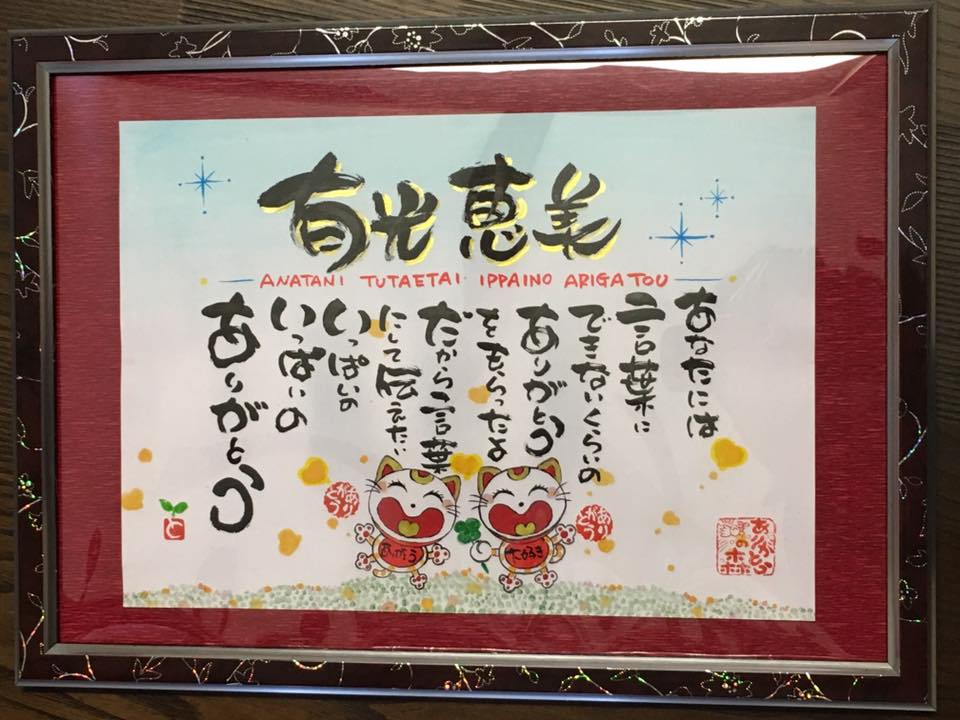 有光 恵美
ANATANI TUTAETAI IPPAINO ARIGATOU
あなたには
言葉に
できないくらいの
ありがとう
をもらったよ
だから言葉
にして伝えたい
いっぱいの
いっぱいの
ありがとう
ありがとう
ありがとう
ありがとう
大好き
と
ありがとうの森